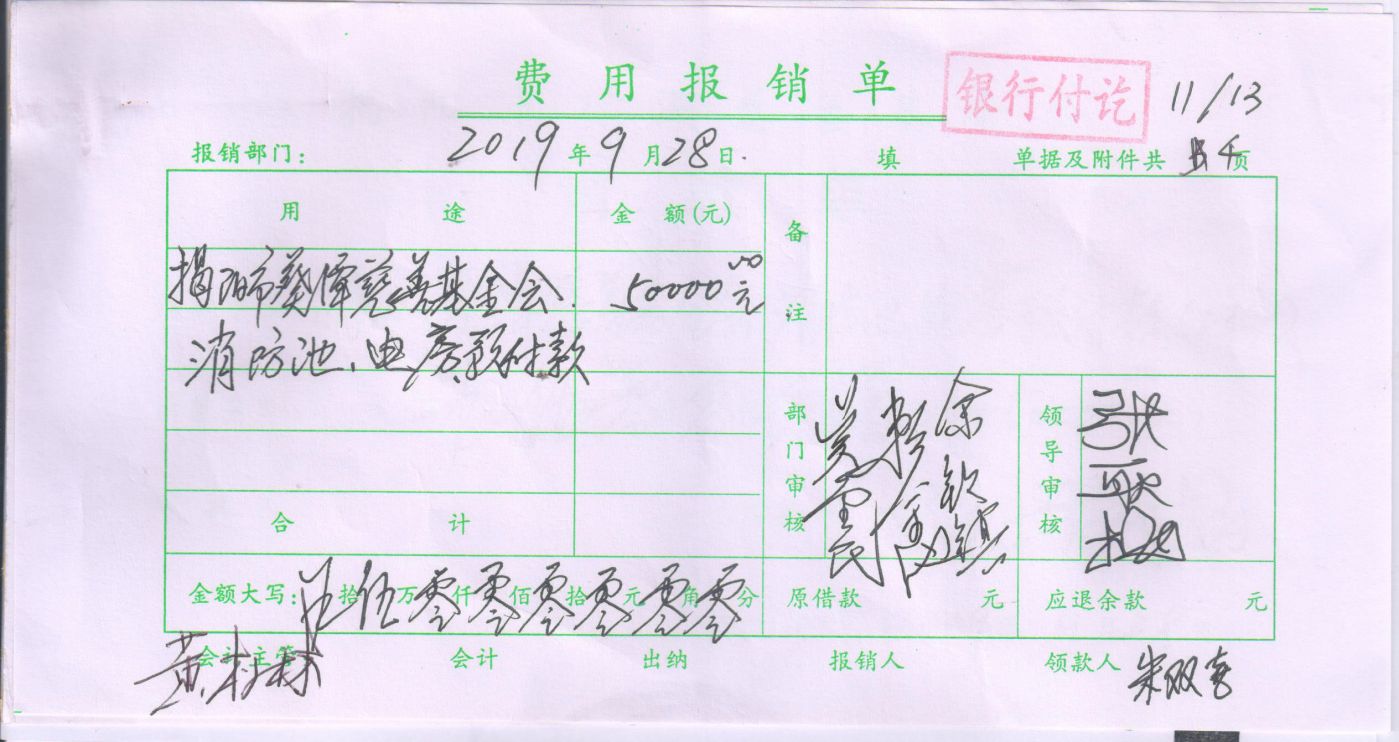 费用报销单 银行付讫 11/13
报销部门： 2019年9月28日. 填 单据及附件共 4页
用途 金额(元) 备注
揭阳市葵潭慈善基金会 50000.00元
消防池、电房预付款
部门审核 领导审核
合计
金额大写： 拾伍万零仟零佰零拾零元零角零分 原借款 元 应退余款 元
会计主管 会计 出纳 报销人 领款人 朱双喜
黄